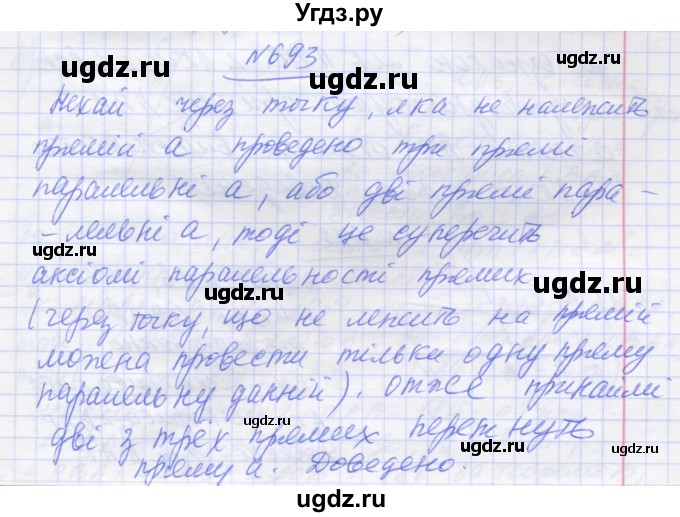 Угдз.ру
№693
Нехай через точку, яка не належить
прямій а проведено три прямі
паралельні а, або дві прямі пара-
-лельні а, тоді це суперечить
аксіомі паралельності прямих
(через точку, що не лежить на прямій
можена провести тільки одну пряму
паралельну данній). Отже принаймі
дві з трьх прямих перетнуть
пряму а. Доведено.
ugdz.ru
ugdz.ru
ugdz.ru
ugdz.ru
ugdz.ru
ugdz.ru
ugdz.ru
ugdz.ru
ugdz.ru
ugdz.ru
ugdz.ru
ugdz.ru
ugdz.ru